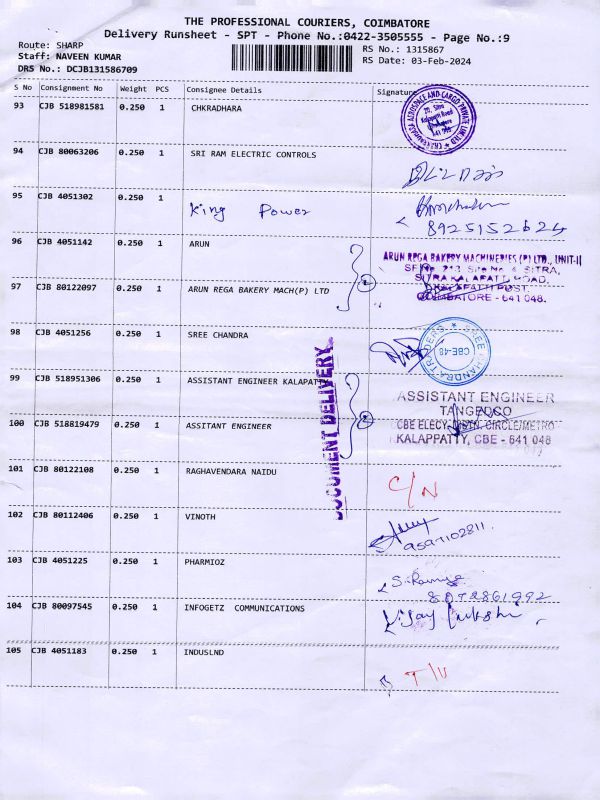 THE PROFESSIONAL COURIERS, COIMBATORE
Delivery Runsheet - SPT - Phone No.:0422-3505555 - Page No.:9
Route: SHARP
Staff: NAVEEN KUMAR
DRS No.: DCJB131586709
RS No.: 1315867
RS Date: 03-Feb-2024
S No Consignment No Weight PCS Consignee Details Signature
93 CJB 518981581 0.250 1 CHKRADHARA
94 CJB 80063206 0.250 1 SRI RAM ELECTRIC CONTROLS
95 CJB 4051302 0.250 1 King Power
8925152624
96 CJB 4051142 0.250 1 ARUN
ARUN REGA BAKERY MACHINERIES (P) LTD., UNIT-II
SITRA,
SITRA KALAPATTI ROAD,
97 CJB 80122097 0.250 1 ARUN REGA BAKERY MACH(P) LTD
KALAPATTI POST,
COIMBATORE - 641 048.
98 CJB 4051256 0.250 1 SREE CHANDRA
SREE CHANDRA TRADERS
CBE-48
DOCUMENT DELIVERY
99 CJB 518951306 0.250 1 ASSISTANT ENGINEER KALAPATTY
ASSISTANT ENGINEER
TANGEDCO
100 CJB 518819479 0.250 1 ASSITANT ENGINEER
CBE ELECY. DISTN. CIRCLE/METRO
KALAPPATTY, CBE - 641 048
101 CJB 80122108 0.250 1 RAGHAVENDARA NAIDU C/N
102 CJB 80112406 0.250 1 VINOTH
103 CJB 4051225 0.250 1 PHARMIOZ
104 CJB 80097545 0.250 1 INFOGETZ COMMUNICATIONS
105 CJB 4051183 0.250 1 INDUSLND